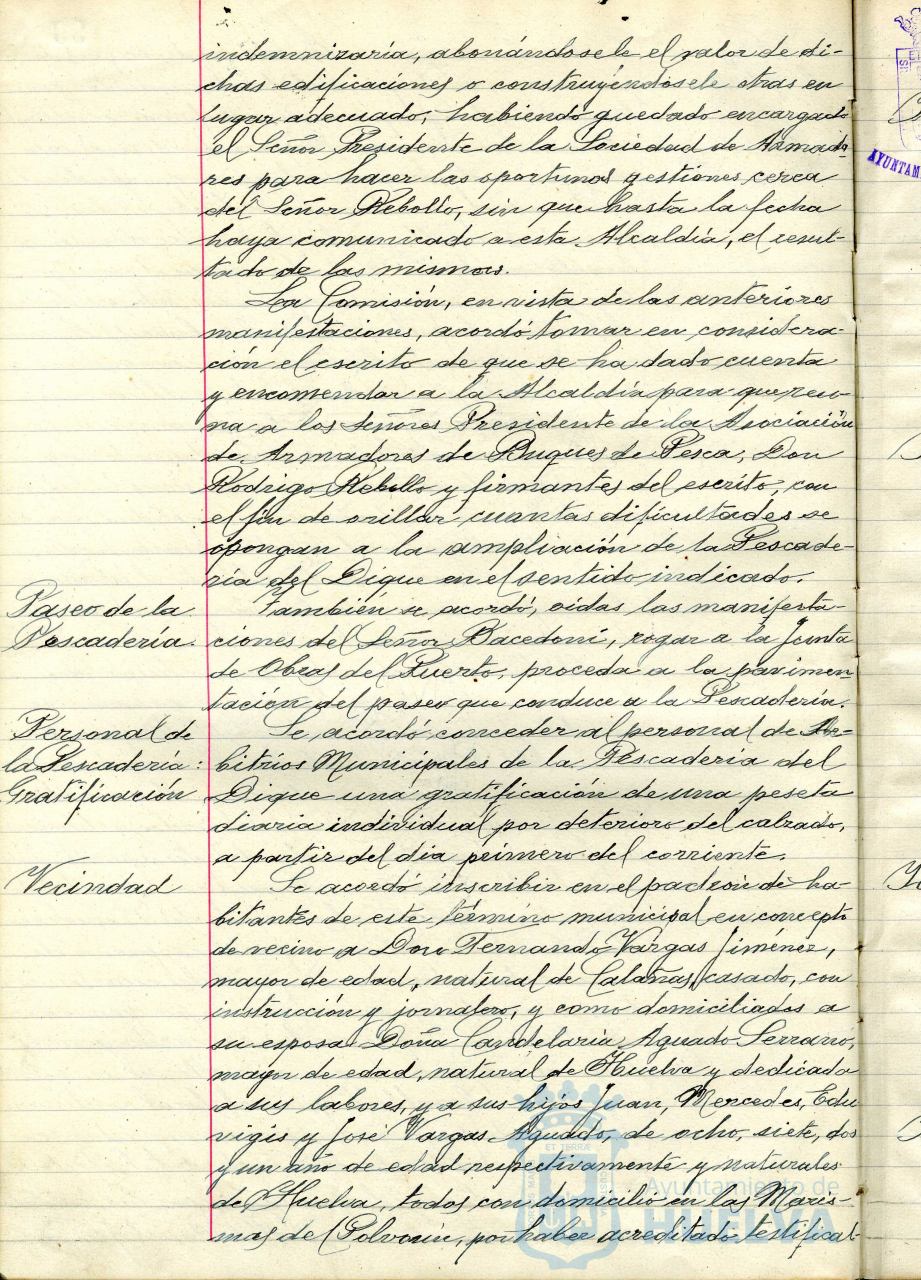 indemnizaría, abonándosele el valor de di-
chas edificaciones o construyéndosele otras en
lugar adecuado, habiendo quedado encargado
el Señor Presidente de la Sociedad de Armado-
res para hacer las oportunas gestiones cerca
del Señor Rebollo, sin que hasta la fecha
haya comunicado a esta Alcaldía, el resul-
tado de las mismas.
La Comisión, en vista de las anteriores
manifestaciones, acordó tomar en considera-
ción el escrito de que se ha dado cuenta
y encomendar a la Alcaldía para que reu-
na a los Señores Presidente de la Asociación
de Armadores de Buques de Pesca, Don
Rodrigo Rebollo y firmantes del escrito, con
el fin de orillar cuantas dificultades se
opongan a la ampliación de la Pescade-
ría del Dique en el sentido indicado.
Paseo de la
Pescadería.
También se acordó, oidas las manifesta-
ciones del Señor Bacedoni, rogar a la Junta
de Obras del Puerto, proceda a la pavimen-
tación del paseo que conduce a la Pescadería.
Personal de
la Pescadería:
Gratificación
Se acordó conceder al personal de Ar-
bitrios Municipales de la Pescaderia del
Dique una gratificación de una peseta
diaria individual por deterioro del calzado,
a partir del dia primero del corriente.
Vecindad
Se acordó inscribir en el padrón de ha-
bitantes de este término municipal en concepto
de vecino a Don Fernando Vargas Jiménez,
mayor de edad, natural de Calañas, casado, con
instrucción y jornalero, y como domiciliados a
su esposa Doña Candelaria Aguado Serrano,
mayor de edad, natural de Huelva y dedicada
a sus labores, y a sus hijos Juan, Mercedes, Edu
vigis y José Vargas Aguado, de ocho, siete, dos
y un año de edad respectivamente y naturales
de Huelva, todos con domicilio en las Maris-
mas del Polvorín, por haber acreditado testifical-
Ayuntamiento de
HUELVA
AYUNTAM